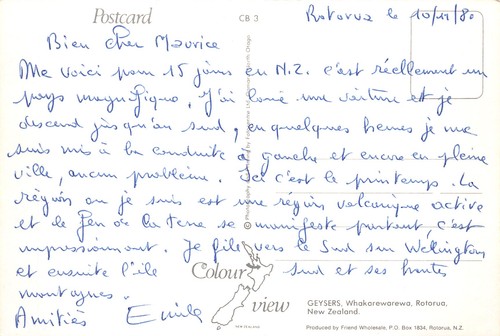 Postcard
CB 3
Rotorua le 10/11/80
Bien cher Maurice
Me voici pour 15 jours en N.Z. c'est réellement un
pays magnifique, J'ai loué une voiture et je
descend jusqu'au sud, en quelques heures je me
suis mis à la conduite à gauche et encore en pleine
ville, aucun problème. Ici c'est le printemps. La
région ou je suis est une région volcanique active
et le feu de la terre se manifeste partout, c'est
impressionnant. Je file vers le Sud sur Wellington
et ensuite l'île sud et ses hautes
montagnes.
Amitiés Emile
Colour
view
NEW ZEALAND
GEYSERS, Whakarewarewa, Rotorua,
New Zealand.
Produced by Friend Wholesale, P.O. Box 1834, Rotorua, N.Z.